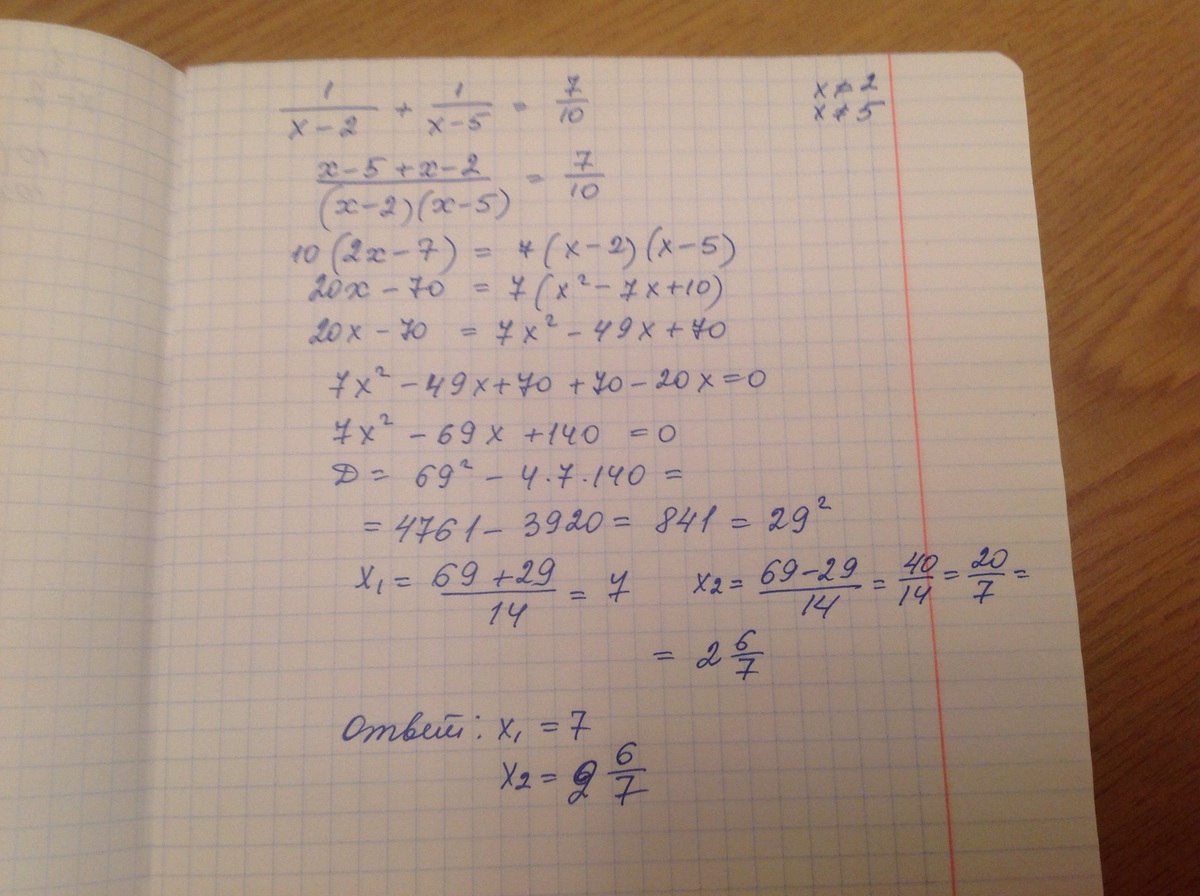 1/(x-2) + 1/(x-5) = 7/10
x≠2
x≠5
(x-5+x-2)/((x-2)(x-5)) = 7/10
10(2x-7) = 7(x-2)(x-5)
20x-70 = 7(x²-7x+10)
20x-70 = 7x²-49x+70
7x²-49x+70+70-20x=0
7x²-69x+140=0
D= 69²-4·7·140=
=4761-3920=841=29²
x₁= (69+29)/14 = 7
x₂= (69-29)/14 = 40/14 = 20/7 =
= 2 6/7
Ответ: x₁=7
x₂=2 6/7